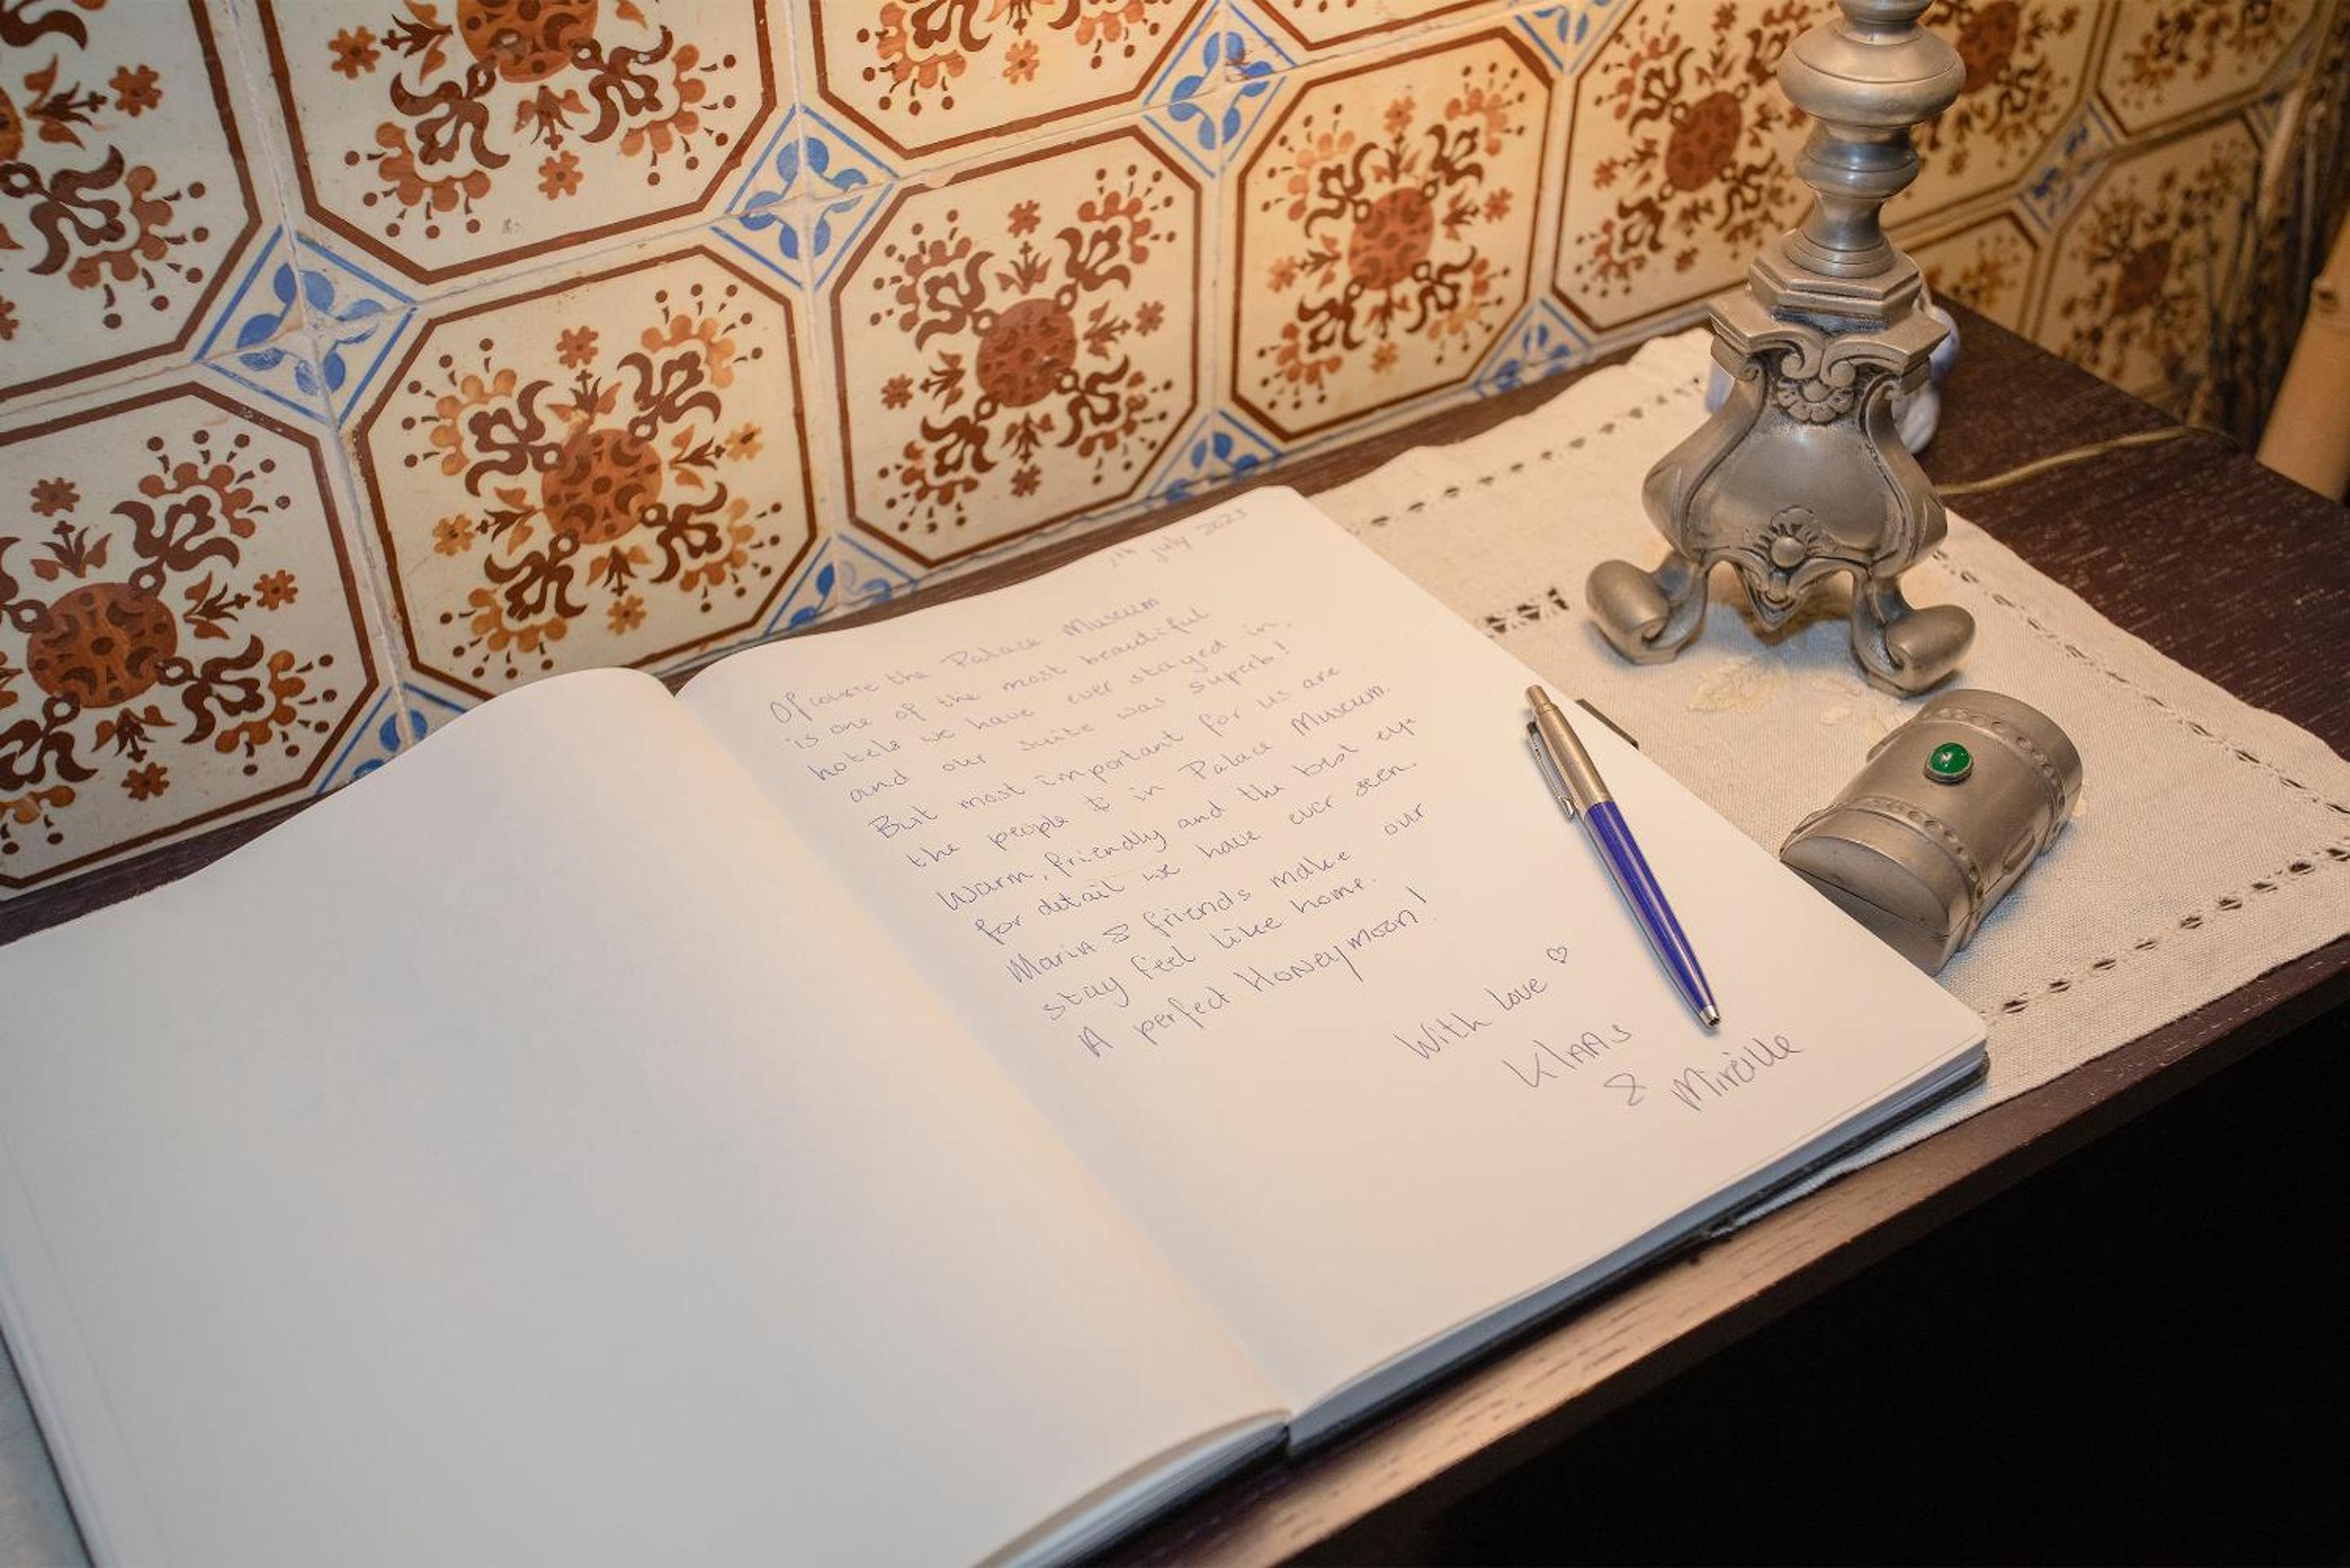 July 2023
Of course the Palace Museum
is one of the most beautiful
hotels we have ever stayed in,
and our suite was superb!
But most important for us are
the people in Palace Museum.
Warm, friendly and the best eye
for detail we have ever seen.
Maria & friends make our
stay feel like home.
A perfect Honeymoon!
With love ♡
Klaas
& Mireille